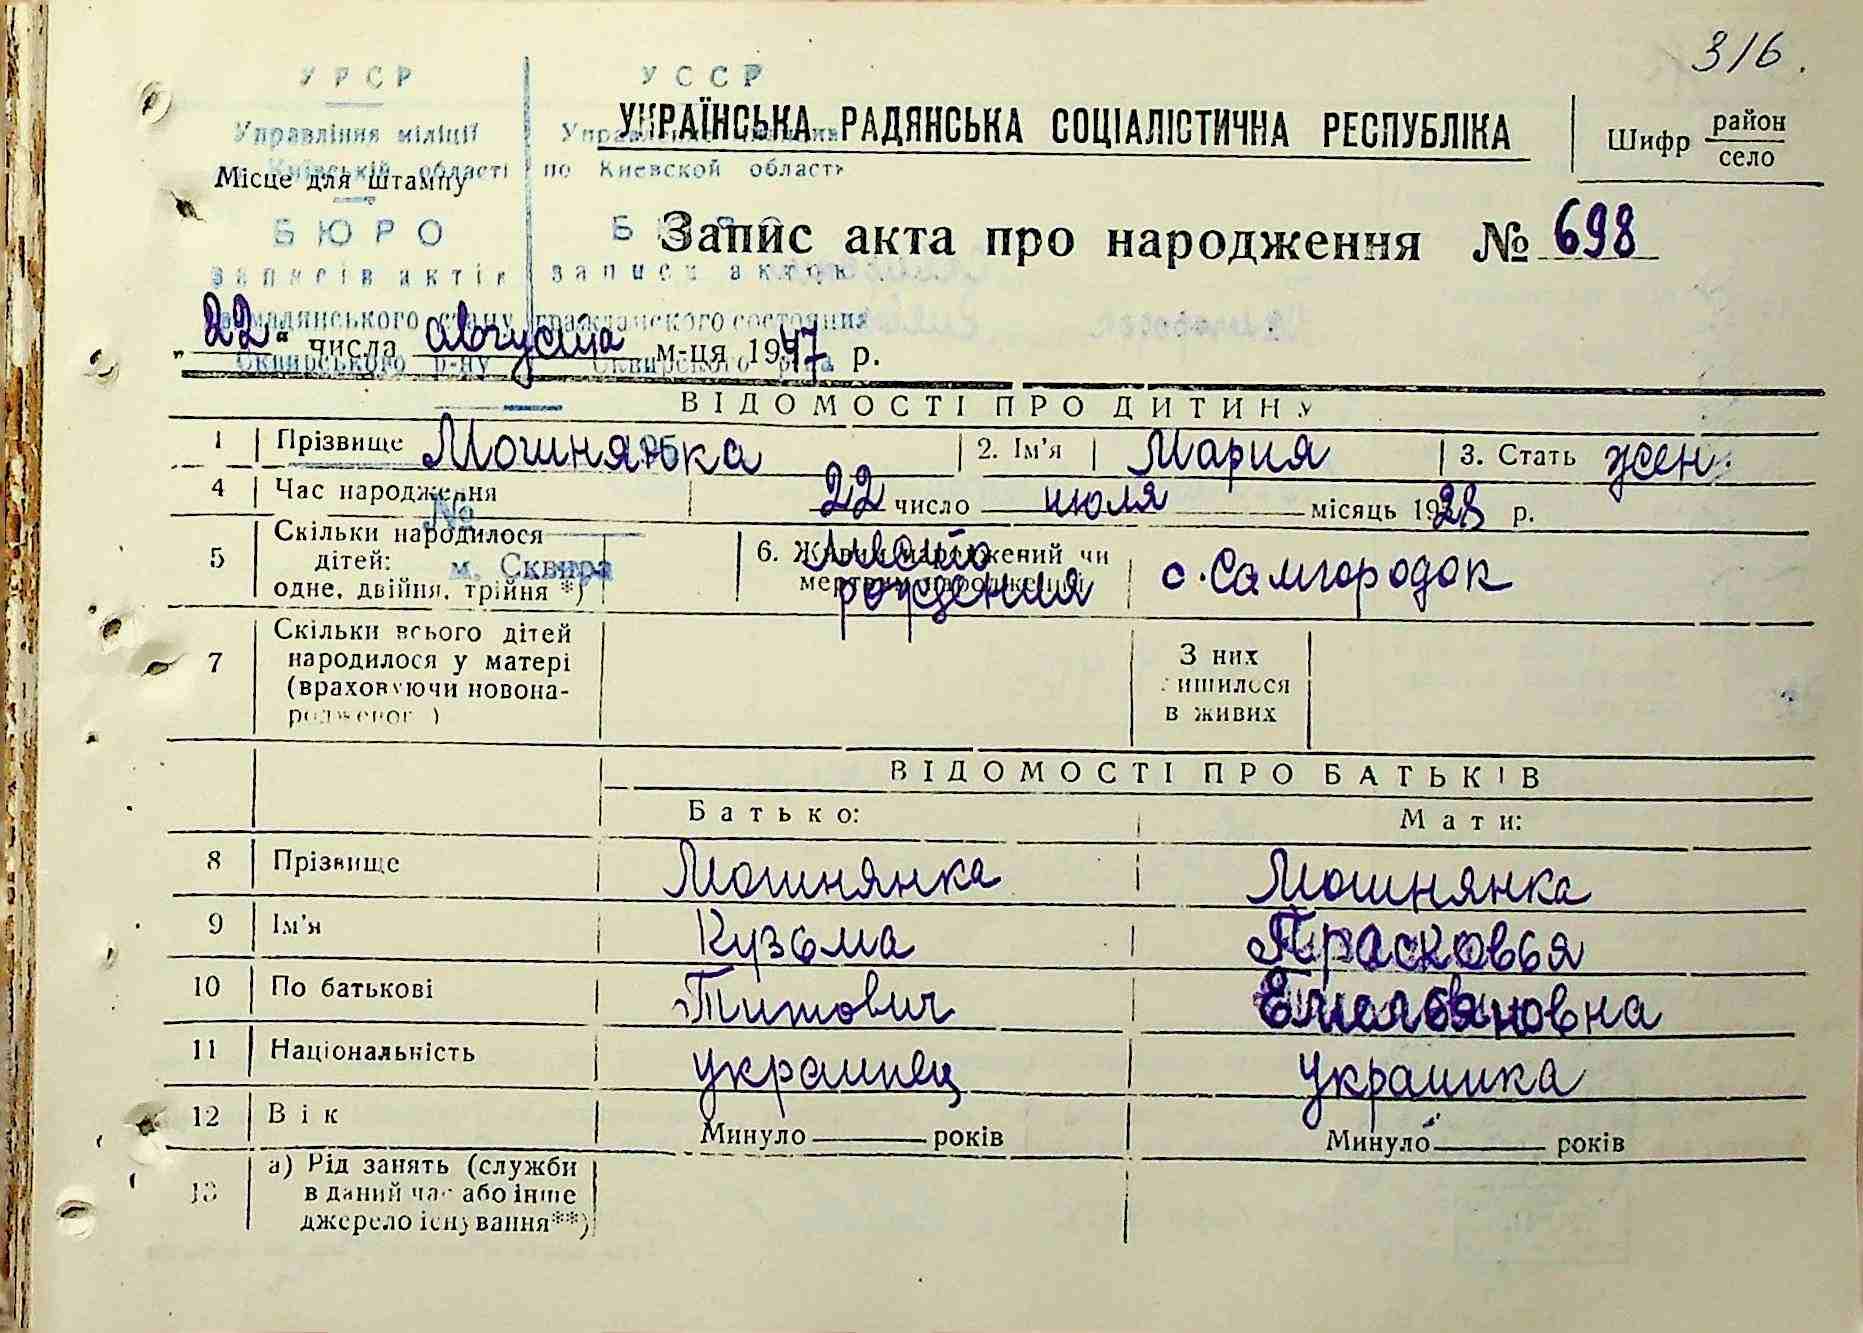 316.
УРСР
УССР
Управління міліції
УКРАЇНСЬКА РАДЯНСЬКА СОЦІАЛІСТИЧНА РЕСПУБЛІКА
Шифр район
село
Київській області по Киевской области
Місце для штампу
БЮРО
Запис акта про народження № 698
записів актів записи актов
громадянського стану гражданского состояния
"22" числа августа м-ця 1947 р.
Сквирського р-ну Сквирского р-на
ВІДОМОСТІ ПРО ДИТИНУ
1 Прізвище Мошнянка 2. Ім'я Мария 3. Стать жен.
4 Час народження 22 число июля місяць 1928 р.
№
5 Скільки народилося
дітей:
одне, двійня, трійня *)
м. Сквира
6. Живим народжений чи
мертвим народжений
Место
рождения
с. Самгородок
7 Скільки всього дітей
народилося у матері
(враховуючи новона-
родженого)
З них
лишилося
в живих
ВІДОМОСТІ ПРО БАТЬКІВ
Батько: Мати:
8 Прізвище Мошнянка Мошнянка
9 Ім'я Кузьма Прасковья
10 По батькові Титович Емельяновна
11 Національність украинец украинка
12 Вік Минуло років Минуло років
13 а) Рід занять (служби
в даний час або інше
джерело існування**)